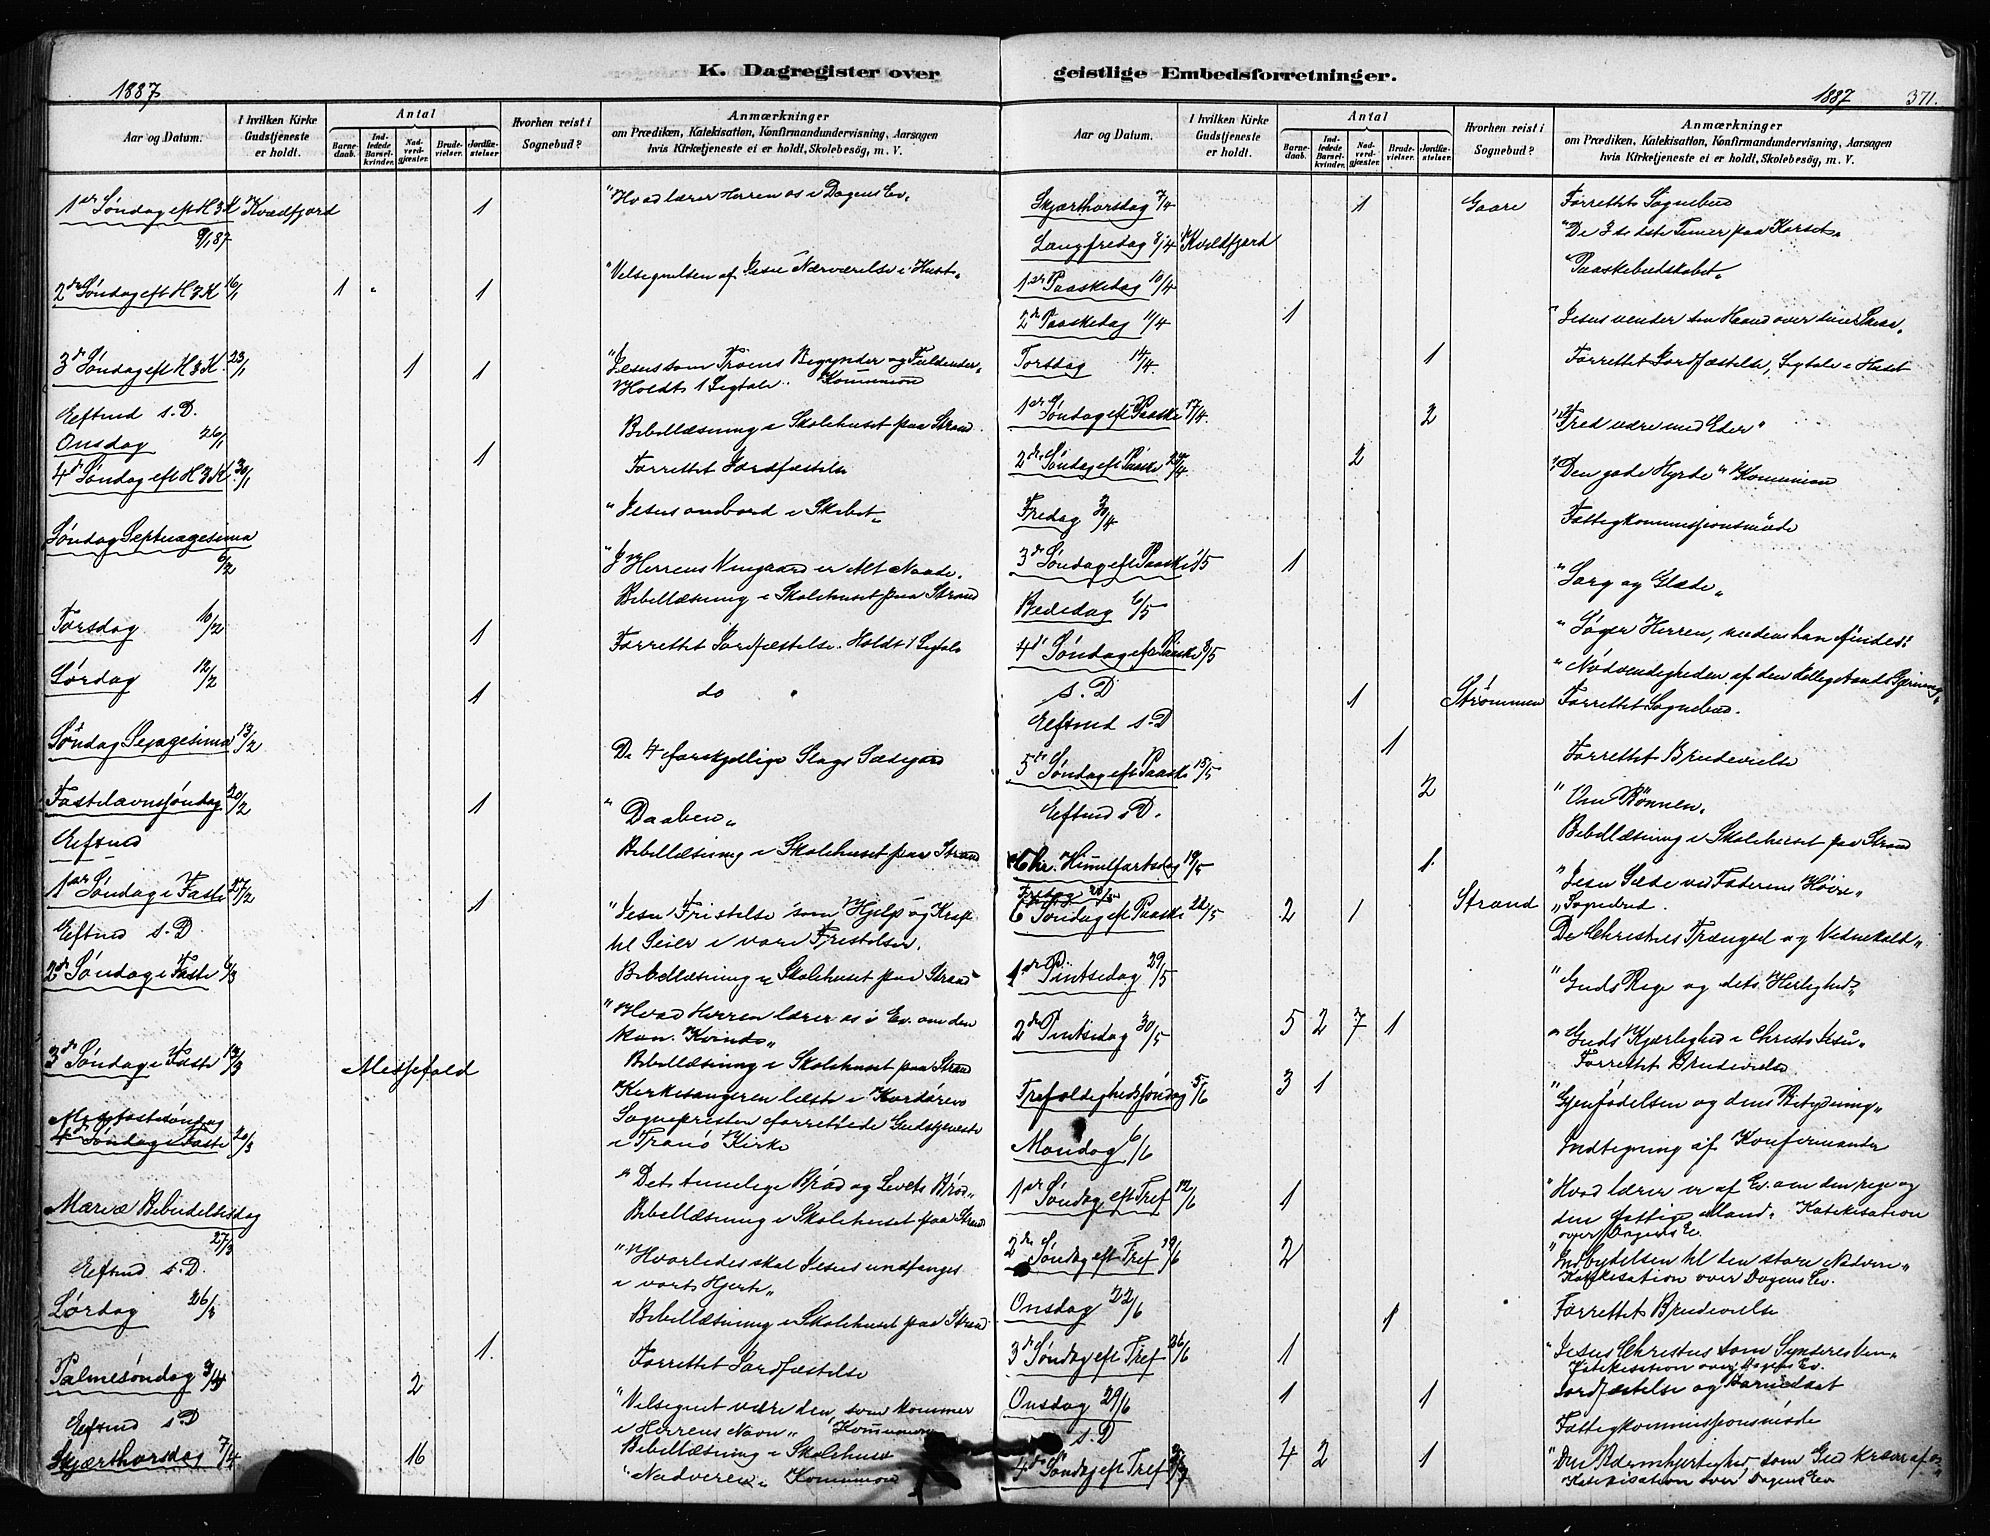 K. Dagregister over
1887
Aar og Datum.
I hvilken Kirke Gudstjeneste er holdt.
Antal
Barne-daab.
Ind-ledede Barsel-kvinder.
Nad-verd-gjester.
Brude-vielser.
Jordfæ-stelser
Hvorhen reist i Sognebud?
Anmærkninger
om Prædiken, Katekisation, Konfirmandundervisning, Aarsagen
hvis Kirketjeneste ei er holdt, Skolebesög, m. V.
1ste Søndag eft H3K Kvædfjord 1 "Hvad lærer Herren os i Dagens Ev.
9/1 87
2den Søndag eft H3K 16/1 1 " 1 "Velsignelsen af Jesu Nærværelse i Huset"
3de Søndag eft H3K. 23/1 1 1 "Jesus som Troens Begynder og Fuldender"
Holdt 1 Ligtale. Kommunion
Eeftmd s.D. Bibellæsning i Skolehuset paa Strand
Onsdag 26/1 1 Forrettet Jordfæstelse
4de Søndag eft H3K. 30/1 "Jesus ombord i Skibet"
Søndag Septuagesima
6/2 "I Herrens Vingaard er Alt Naade.
Bibellæsning i Skolehuset paa Strand
Torsdag 10/2 1 Forrettet Jordfæstelse. Holdt 1 Ligtale
Lørdag 12/2 1 do "
Søndag Sexagesima 13/2 De 4 forskjellige Slags Sædejord
Fastelavnssøndag 20/2 1 "Daaben"
Eeftmd Bibellæsning i Skolehuset paa Strand
1ste Søndag i Faste 27/2 1 "Jesu Fristelse som Hjelp og Kraft
til Seier i vore Fristelser.
Eeftmd s.D Bibellæsning i Skolehuset paa Strand
2den Søndag i Faste 6/3 "Hvad Herren lærer os i Ev. om den
kan. Kvinde"
Bibellæsning i Skolehuset paa Strand
3de Søndag i Faste 13/3 Messefald Kirkesangeren læste i Kordøren
Sognepresten forrettede Gudstjeneste
i Tranø Kirke
Midfastesøndag
4de Søndag i Faste 20/3 "Det timelige Brød og Livets Brød"
Bibellæsning i Skolehuset paa Strand
Mariæ Bebudelsesdag
27/3 "Hvorledes skal Jesus undfanges
i vort Hjerte"
Eeftmd s.D. Bibellæsning i Skolehuset paa Strand
Lørdag 26/3 1. Forrettet Jordfæstelse
Palmesøndag 3/4 2 "Velsignet være den, som kommer
i Herrens Navn" Kommunion
Eeftmd s.D Bibellæsning i Skolehuset
Skjærthorsdag 7/4 16 "Nadveren" Kommunion
geistlige Embedsforretninger.
1887 371.
Aar og Datum.
I hvilken Kirke Gudstjeneste er holdt.
Antal
Barne-daab.
Ind-ledede Barsel-kvinder.
Nad-verd-gjester.
Brude-vielser.
Jordfæ-stelser.
Hvorhen reist i Sognebud?
Anmærkninger
om Prædiken, Katekisation, Konfirmandundervisning, Aarsagen
hvis Kirketjeneste ei er holdt, Skolebesög, m. V.
Skjærthorsdag 7/4 1 Gaare Forrettet Sognebud
Langfredag 8/4 Kvædfjord "De 3 sidste Timer paa Korset"
1ste Paaskedag 10/4 "Paaskebudskabet"
2den Paaskedag 11/4 1 "Jesus vender sin Haand over
Torsdag 14/4. 1 Forrettet Jordfæstelse, Ligtale i Huset
1ste Søndag eft Paaske 17/4. 2 "Fred være med Eder"
2den Søndag eft Paaske 24/4 2 "Den gode Hyrde" Kommunion
Fredag 30/4 Fattigkommissionsmøde
3de Søndag eft Paaske 1/5 1 "Sorg og Glæde"
Bededag 6/5 "Søger Herren, medens han findes"
4de Søndag eft Paaske 8/5 "Nødvendigheden af den Helligaands Gjerning"
s.D 1 Strømmen Forrettet Sognebud.
Eeftmd s.D 1 Forrettet Brudevielse
5te Søndag eft Paaske 15/5 2 "Om Bønnen"
Eeftmd s.D. Bibellæsning i Skolehuset paa Strand
Chr. Himmelfartsdag 19/5 1. "Jesu Sæde ved Faderens Høire"
Fredag 20/5 Strand "Sognebud.
6 Søndag eft Paaske 22/5 2 1 De Christnes Trængsel og Vidnekald"
1ste Pintsedag 29/5 "Guds Rige og dets Herlighed"
2den Pintsedag 30/5 5 2 7 1 "Guds Kjærlighed i Christo Jesu"
Forrettet Brudevielse
Trefoldighedssøndag 5/6 3 1 "Gjenfødelsen og dens Betydning"
Mandag 6/6 Indtegning af Konfirmander
1ste Søndag eft Tref 12/6 1 "Hvad lærer vi af Ev. om den rige og
den fattige Mand. Katekisation
over Dagens Ev.
2den Søndag eft Tref 19/6 2 "Indbydelsen til den store Nadvere"
Katekisation over Dagens Ev.
Onsdag 22/6 1 Forrettet Brudevielse
3de Søndag eft Tref 26/6 1 "Jesus Christus som Synderes Ven"
Katekisation over Dagens Ev.
Onsdag 29/6 1 1 Jordfæstelse og Barnedaab
s.D Fattigkommissionsmøde
4de Søndag eft Tref 3/7 4 2 1 "Den Barmhjertighed, som Gud kræver af os"
Katekisation over Dagens Ev